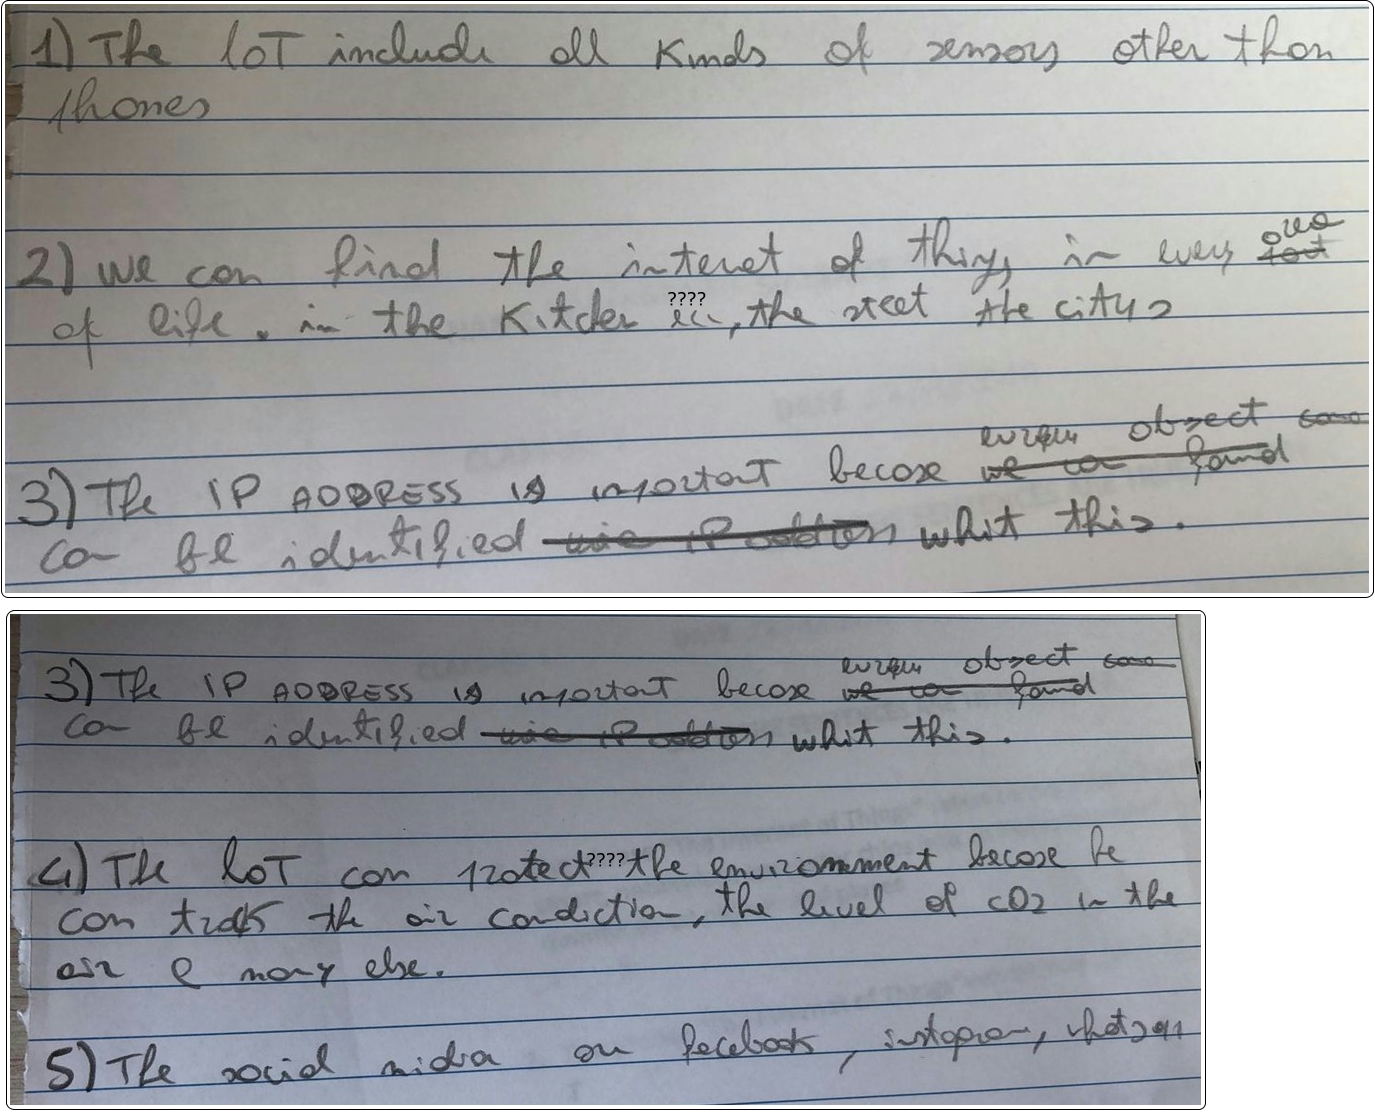 1) The IoT include all kinds of sensors other than
phones
2) we can find the internet of things in every area
of life. in the Kitchen ????, the street the citys
3) The IP ADDRESS is important becose object
can be identified whit this.
3) The IP ADDRESS is important becose object
can be identified whit this.
4) The IoT can protect ???? the environmment becose he
can track the air condiction, the level of CO2 in the
air e many else.
5) The social midia on facebook, instagram, whatsapp